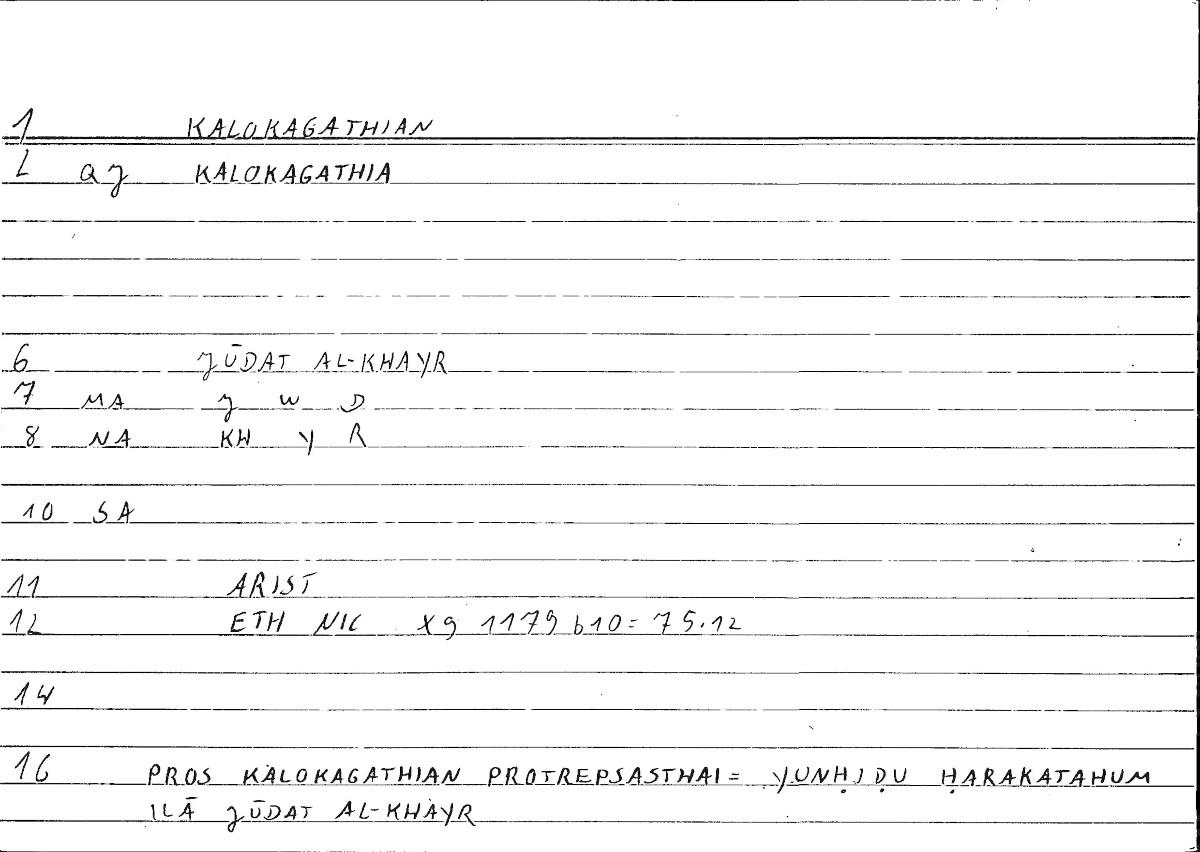 1 KALOKAGATHIAN
2 aj KALOKAGATHIA
6 JŪDAT AL-KHAYR
7 MA J W D
8 NA KH Y R
10 SA
11 ARIST
12 ETH NIC X9 1179 b10 = 75.12
14
16 PROS KALOKAGATHIAN PROTREPSASTHAI = YUNHIḌU ḤARAKATAHUM
ILĀ JŪDAT AL-KHAYR